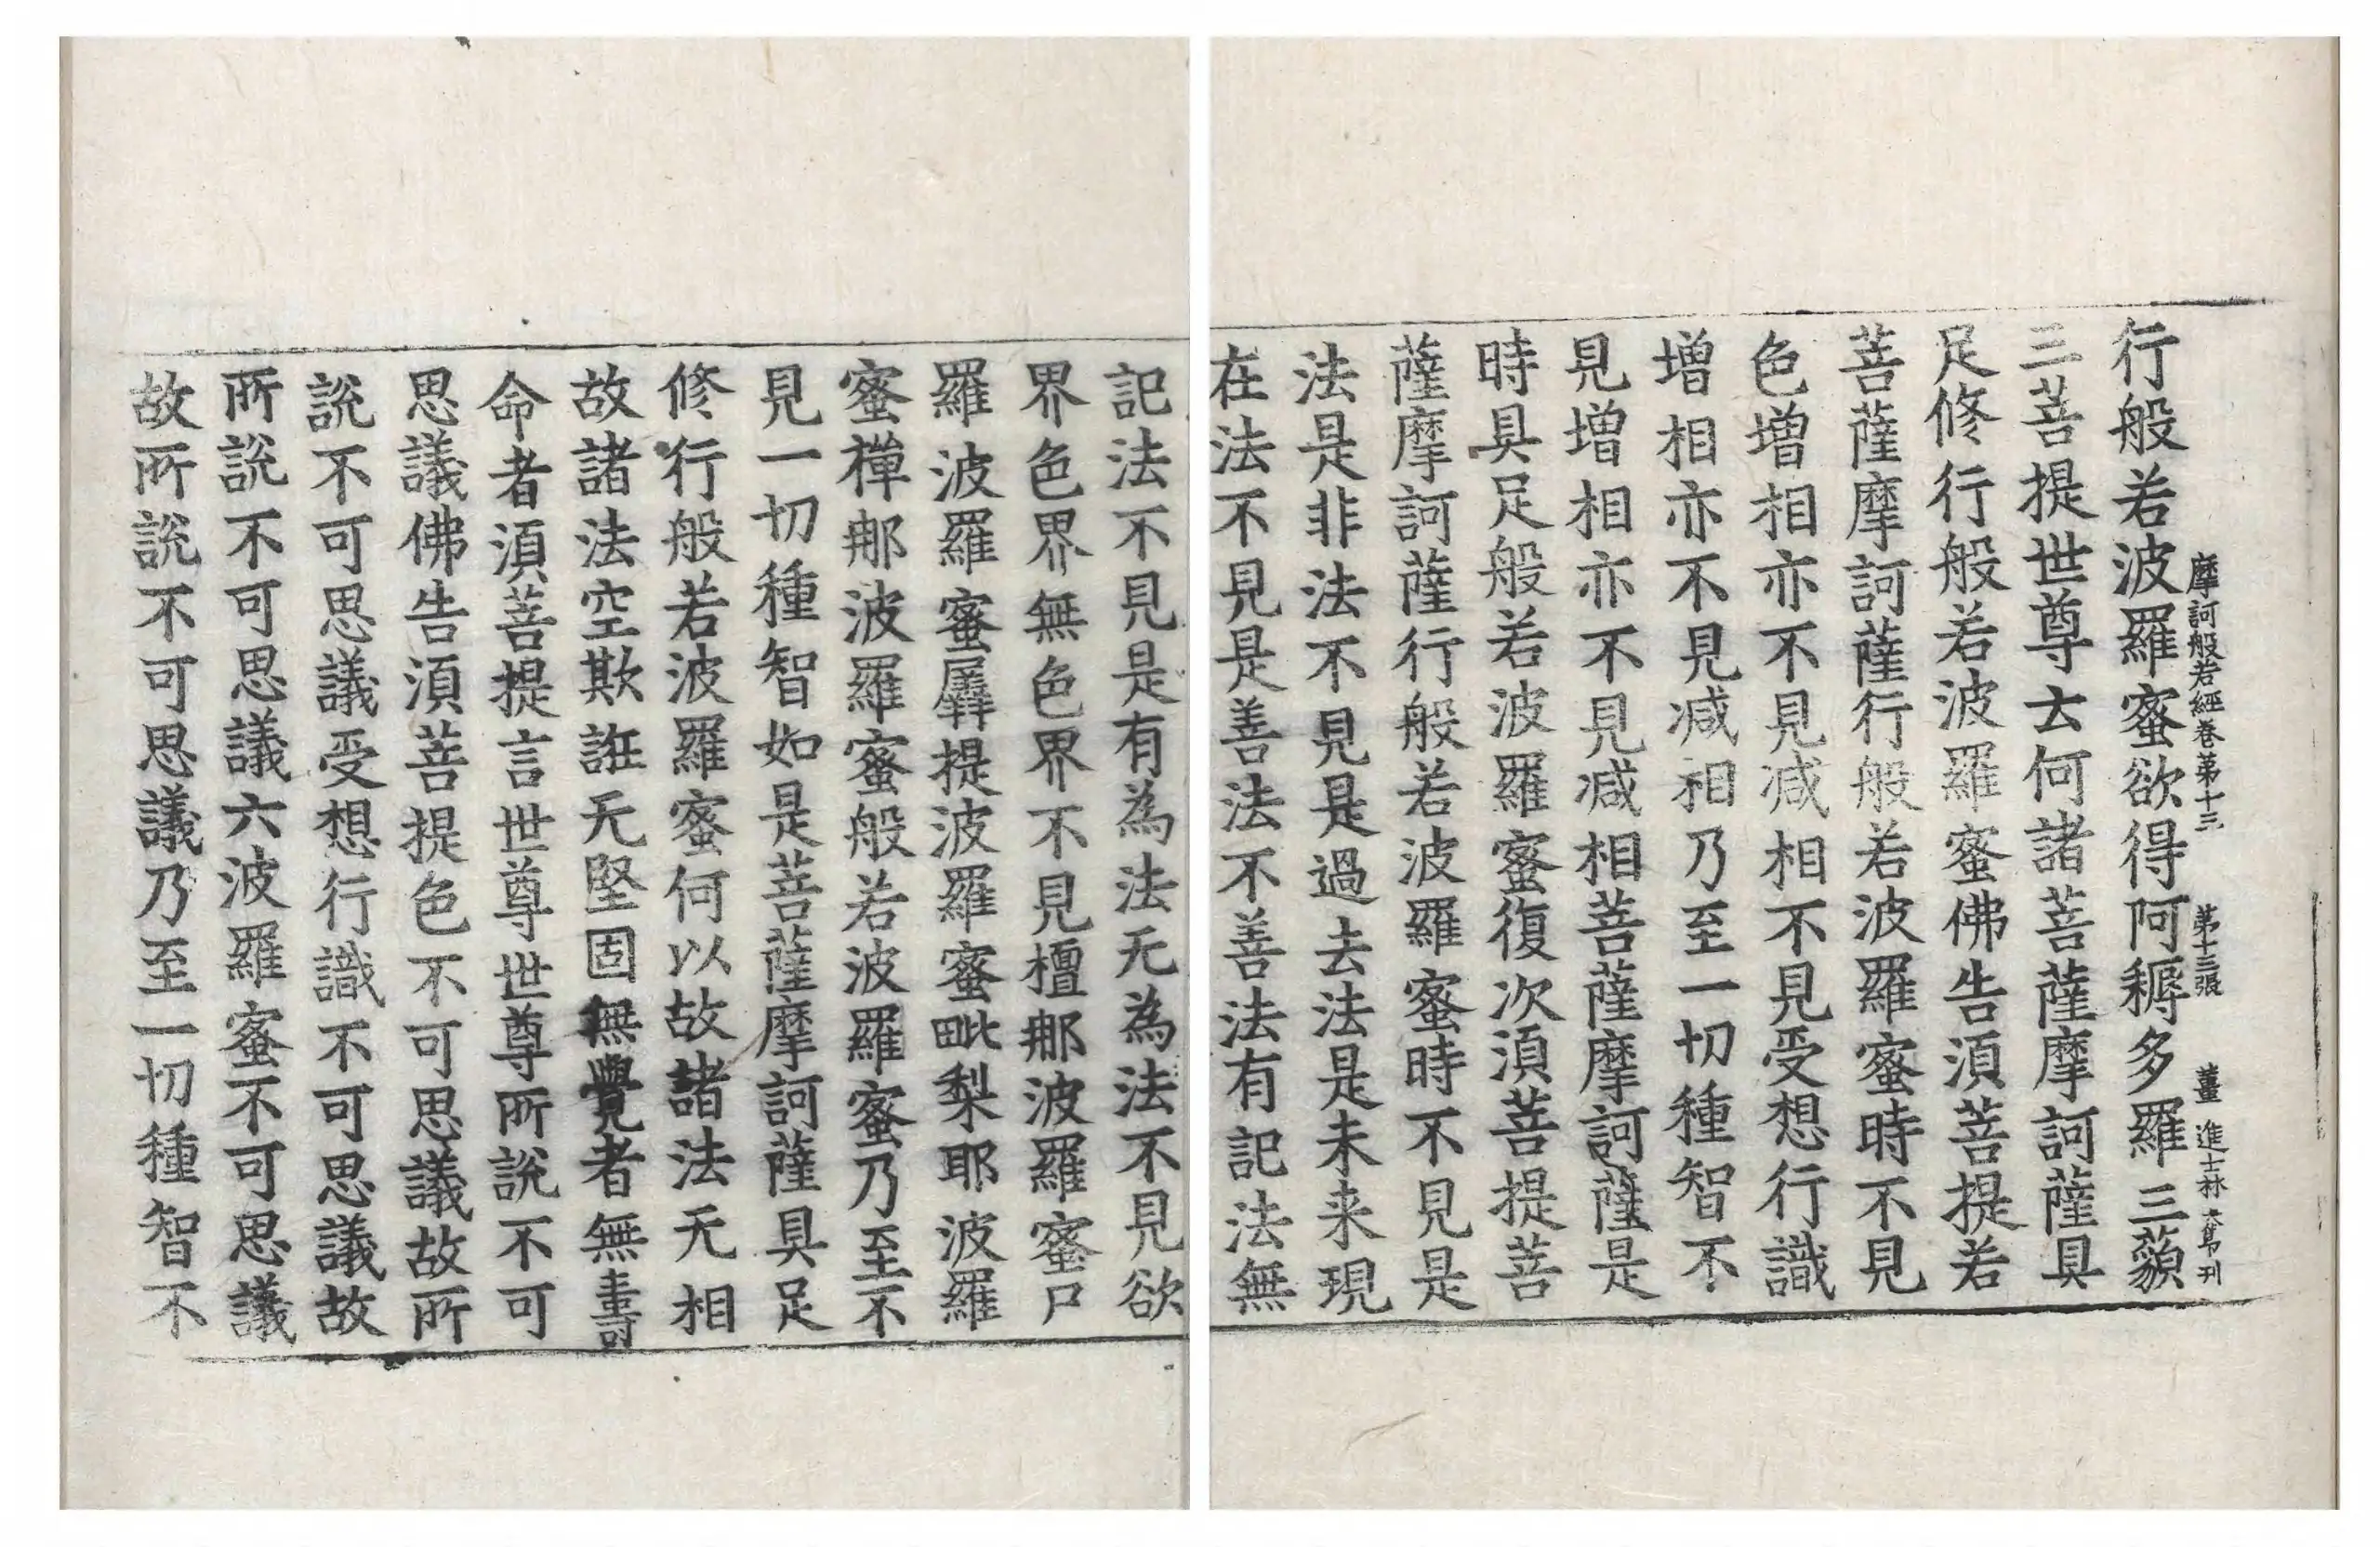 摩訶般若經卷第十三 第十三張 薑 進士林大節刊
行般若波羅蜜欲得阿耨多羅三藐
三菩提世尊云何諸菩薩摩訶薩具
足修行般若波羅蜜佛告湏菩提若
菩薩摩訶薩行般若波羅蜜時不見
色增相亦不見減相不見受想行識
增相亦不見減相乃至一切種智不
見增相亦不見減相菩薩摩訶薩是
時具足般若波羅蜜復次湏菩提菩
薩摩訶薩行般若波羅蜜時不見是
法是非法不見是過去法是未来現
在法不見是善法不善法有記法無
記法不見是有為法无為法不見欲
界色界無色界不見檀那波羅蜜尸
羅波羅蜜羼提波羅蜜毗梨耶波羅
蜜禪那波羅蜜般若波羅蜜乃至不
見一切種智如是菩薩摩訶薩具足
修行般若波羅蜜何以故諸法无相
故諸法空欺誑无堅固無覺者無壽
命者湏菩提言世尊世尊所說不可
思議佛告湏菩提色不可思議故所
說不可思議受想行識不可思議故
所說不可思議六波羅蜜不可思議
故所說不可思議乃至一切種智不